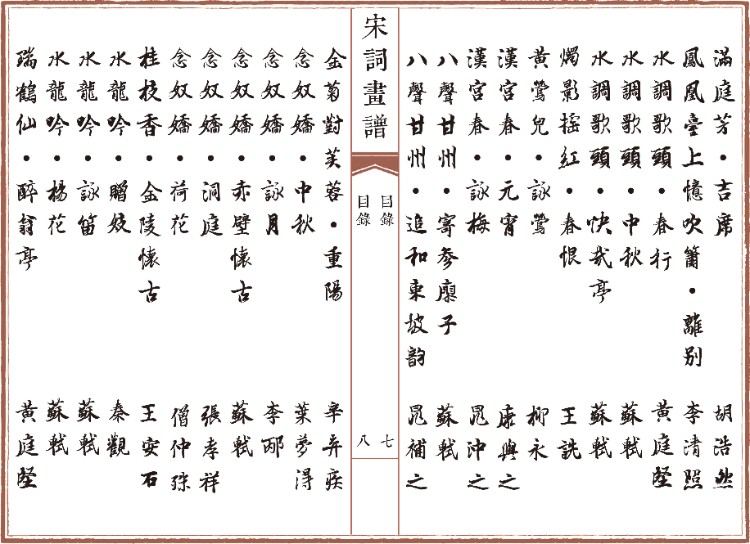 滿庭芳·吉席 胡浩然
鳳凰臺上憶吹簫·離别 李清照
水調歌頭·春行 黄庭堅
水調歌頭·中秋 蘇軾
水調歌頭·快哉亭 蘇軾
燭影摇紅·春恨 王詵
黄鶯兒·詠鶯 柳永
漢宮春·元宵 康與之
漢宮春·詠梅 晁沖之
八聲甘州·寄參廖子 蘇軾
八聲甘州·追和東坡韵 晁補之
宋詞畫譜
目錄
七
目錄
八
金菊對芙蓉·重陽 辛弃疾
念奴嬌·中秋 葉夢得
念奴嬌·詠月 李邴
念奴嬌·赤壁懷古 蘇軾
念奴嬌·洞庭 張孝祥
念奴嬌·荷花 僧仲殊
桂枝香·金陵懷古 王安石
水龍吟·贈妓 秦觀
水龍吟·詠笛 蘇軾
水龍吟·楊花 蘇軾
瑞鶴仙·醉翁亭 黄庭堅